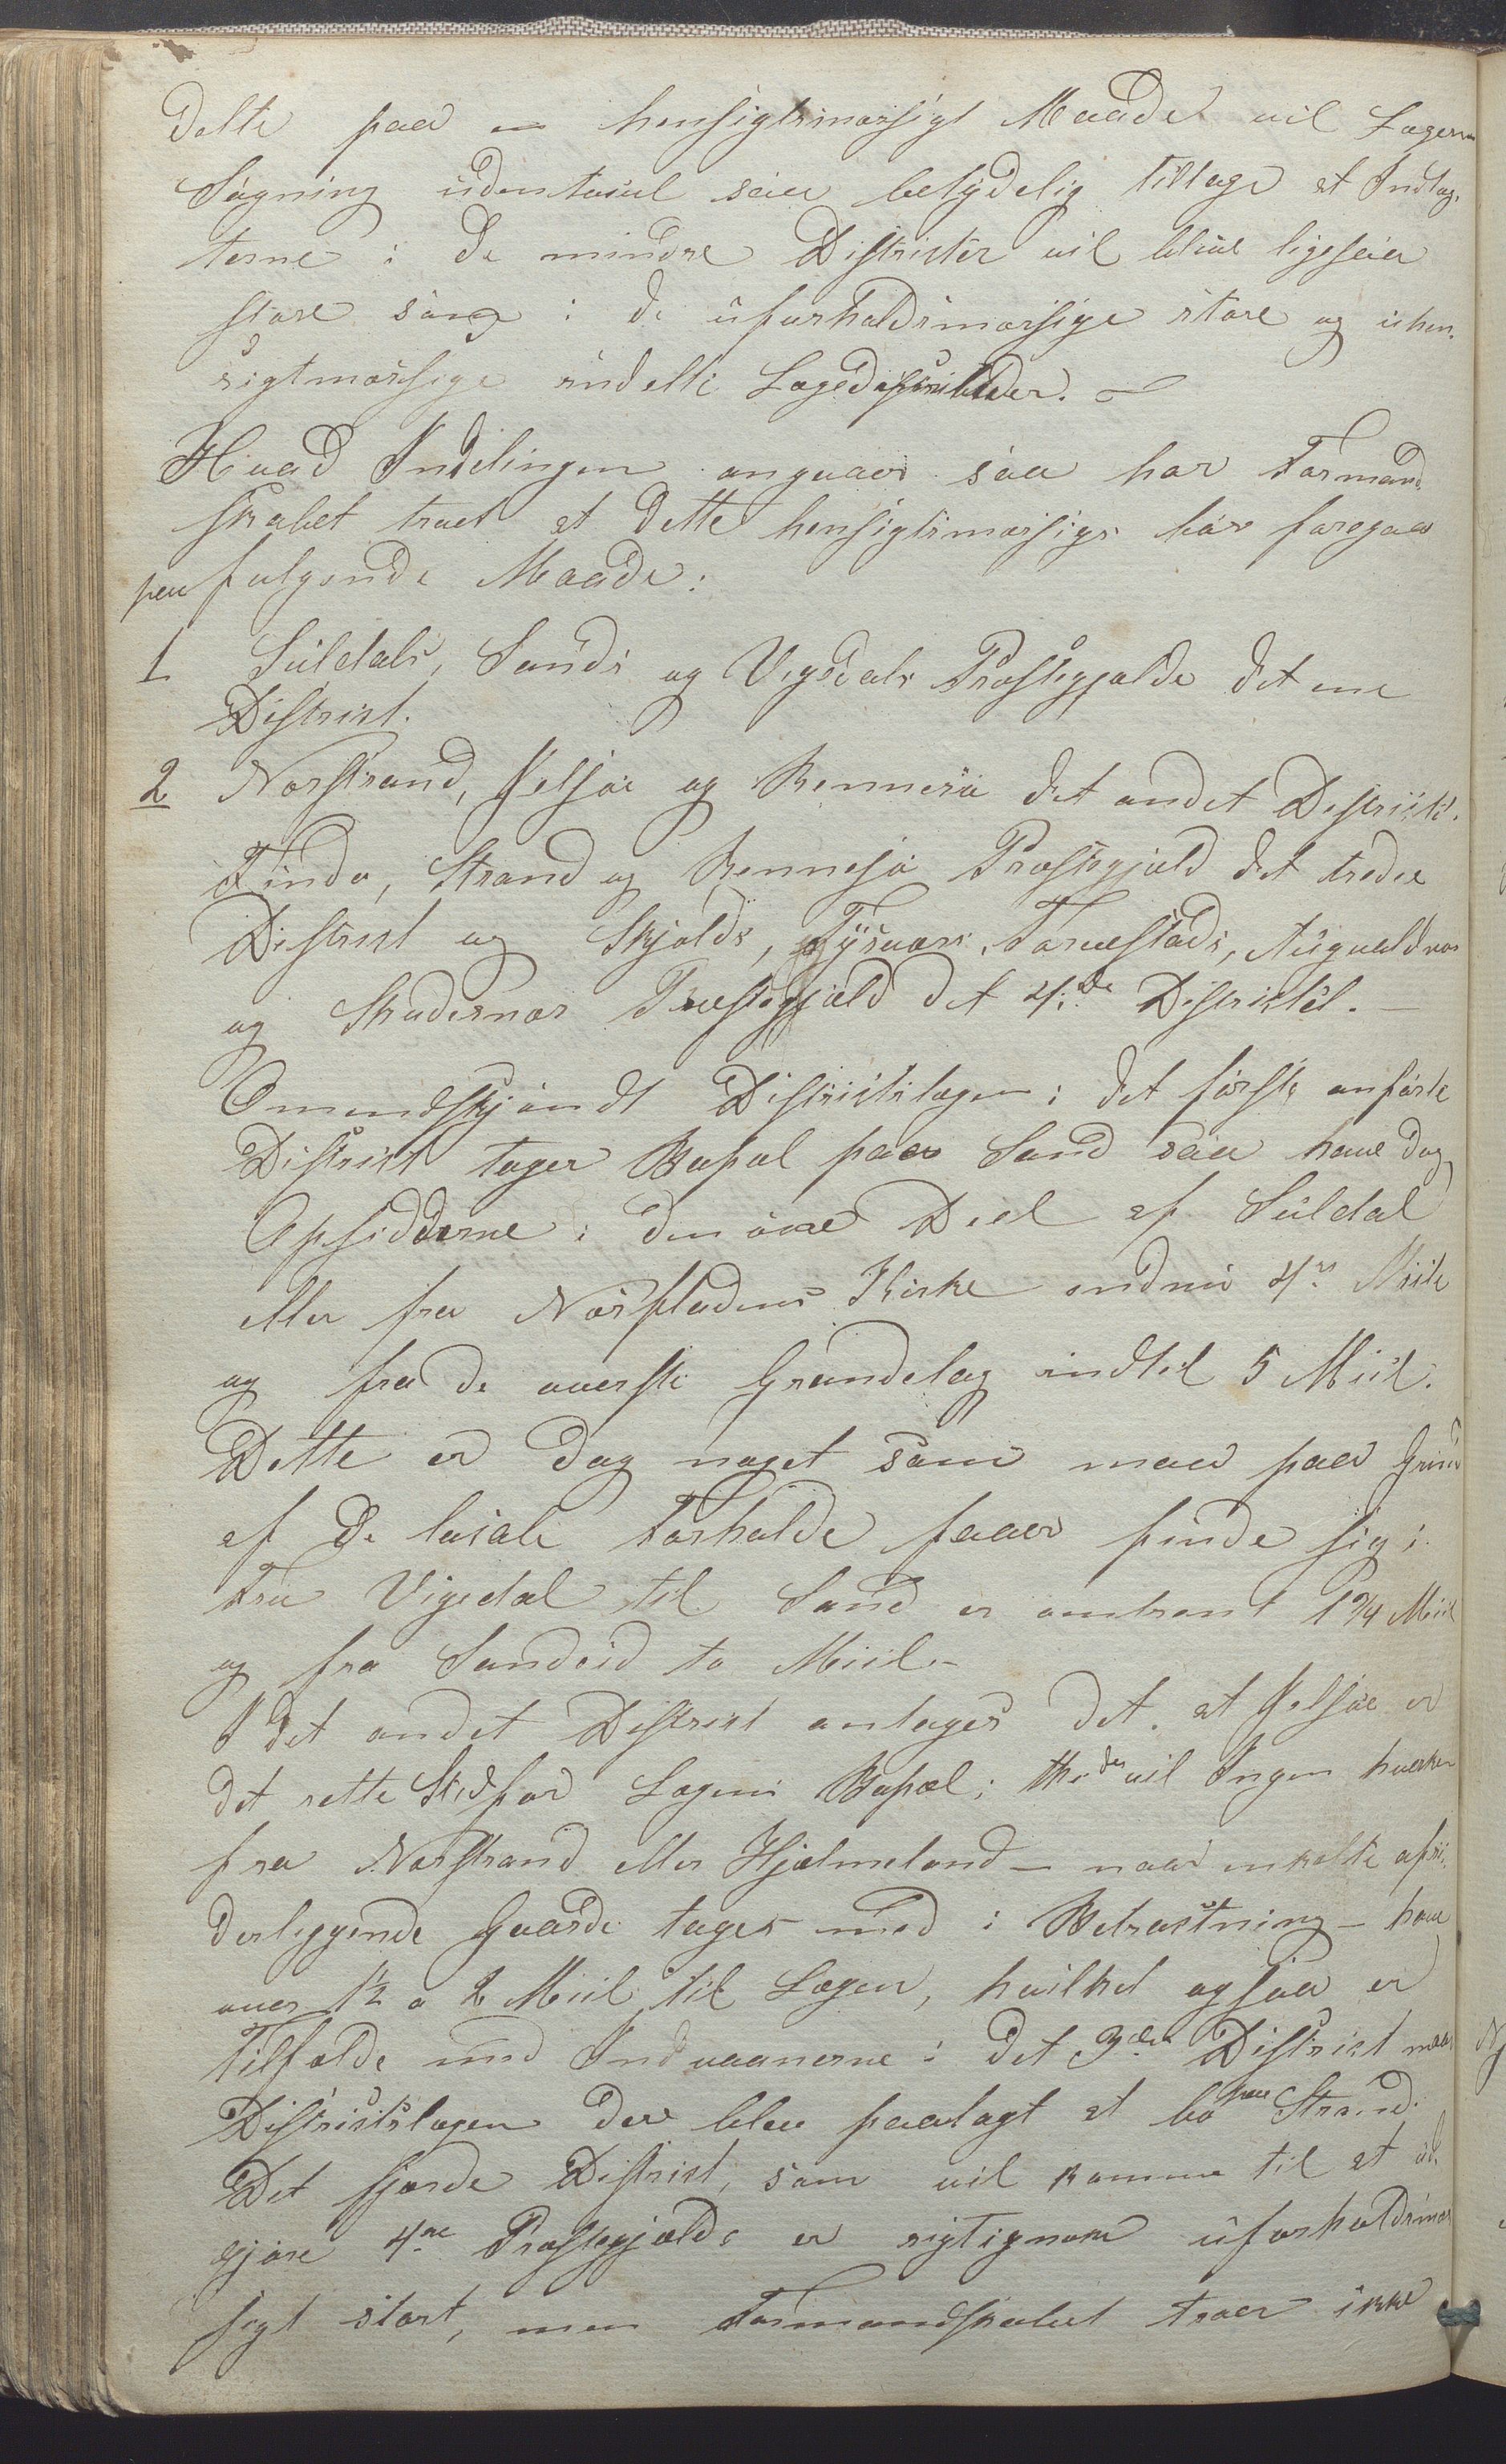 delte paa en hensigtsmæssigt Maade vil Lægens
Søgning udentvivl saa betydelig tiltage at Indtæg,
terne i de mindre Districter vil blive ligesaa
store som i de uforholdsmæssige store og uhen,
sigtmæssige inddelte Lægedistricter. –
Hvad Inddelingen angaaer saa har Formand,
skabet troet at dette hensigtsmæssigs bør foregaa
paa følgende Maade:
1 Suldals, Sands og Vigedals Præstegjælde det ene
District.
2 Nærstrand, Jelsøe og Rennesø det andet District.
Findø, Strand og Rennesø Præstegjæld det tredie
District og Skjolds, Tysvær, Torvestads, Augvaldnæs
og Skudesnæs Præstegjæld det 4:de District. –
Omendskjøndt Districtslægen i det første anførte
District tager Bopæl paa Sand saa have dog
Opsidderne i den øvre Deel af Suldal
eller fra Næsfladens Kirke endnu 4re Miil
og fra de øverste Grændelag indtil 5 Miil.
Dette er dog noget som man paa Grund
af de locale Forholde faaer finde sig i.
Fra Vigedal til Sand er omtrent 1 3/4 Miil
og fra Sandeid to Miil. –
I det andet District antages det, at Jelsøe er
det rette Sted for Lægens Bopæl; thi der vil Ingen hverken
fra Nærstrand eller Hjelmeland – naar enkelte afsi,
desliggende Gaarde tages med i Betragtning – have
over 1½ a 2 Miil til Lægen, hvilket ogsaa er
Tilfælde med Indvaanerne i det 3die District naar
Districtslægen der blev paalagt at bo paa Strand.
Det fjerde District, som vil komme til at ud,
gjøre 4re Præstegjælde er rigtignok uforholdsmæs
sigt stort, men Formandskabet troer ikke